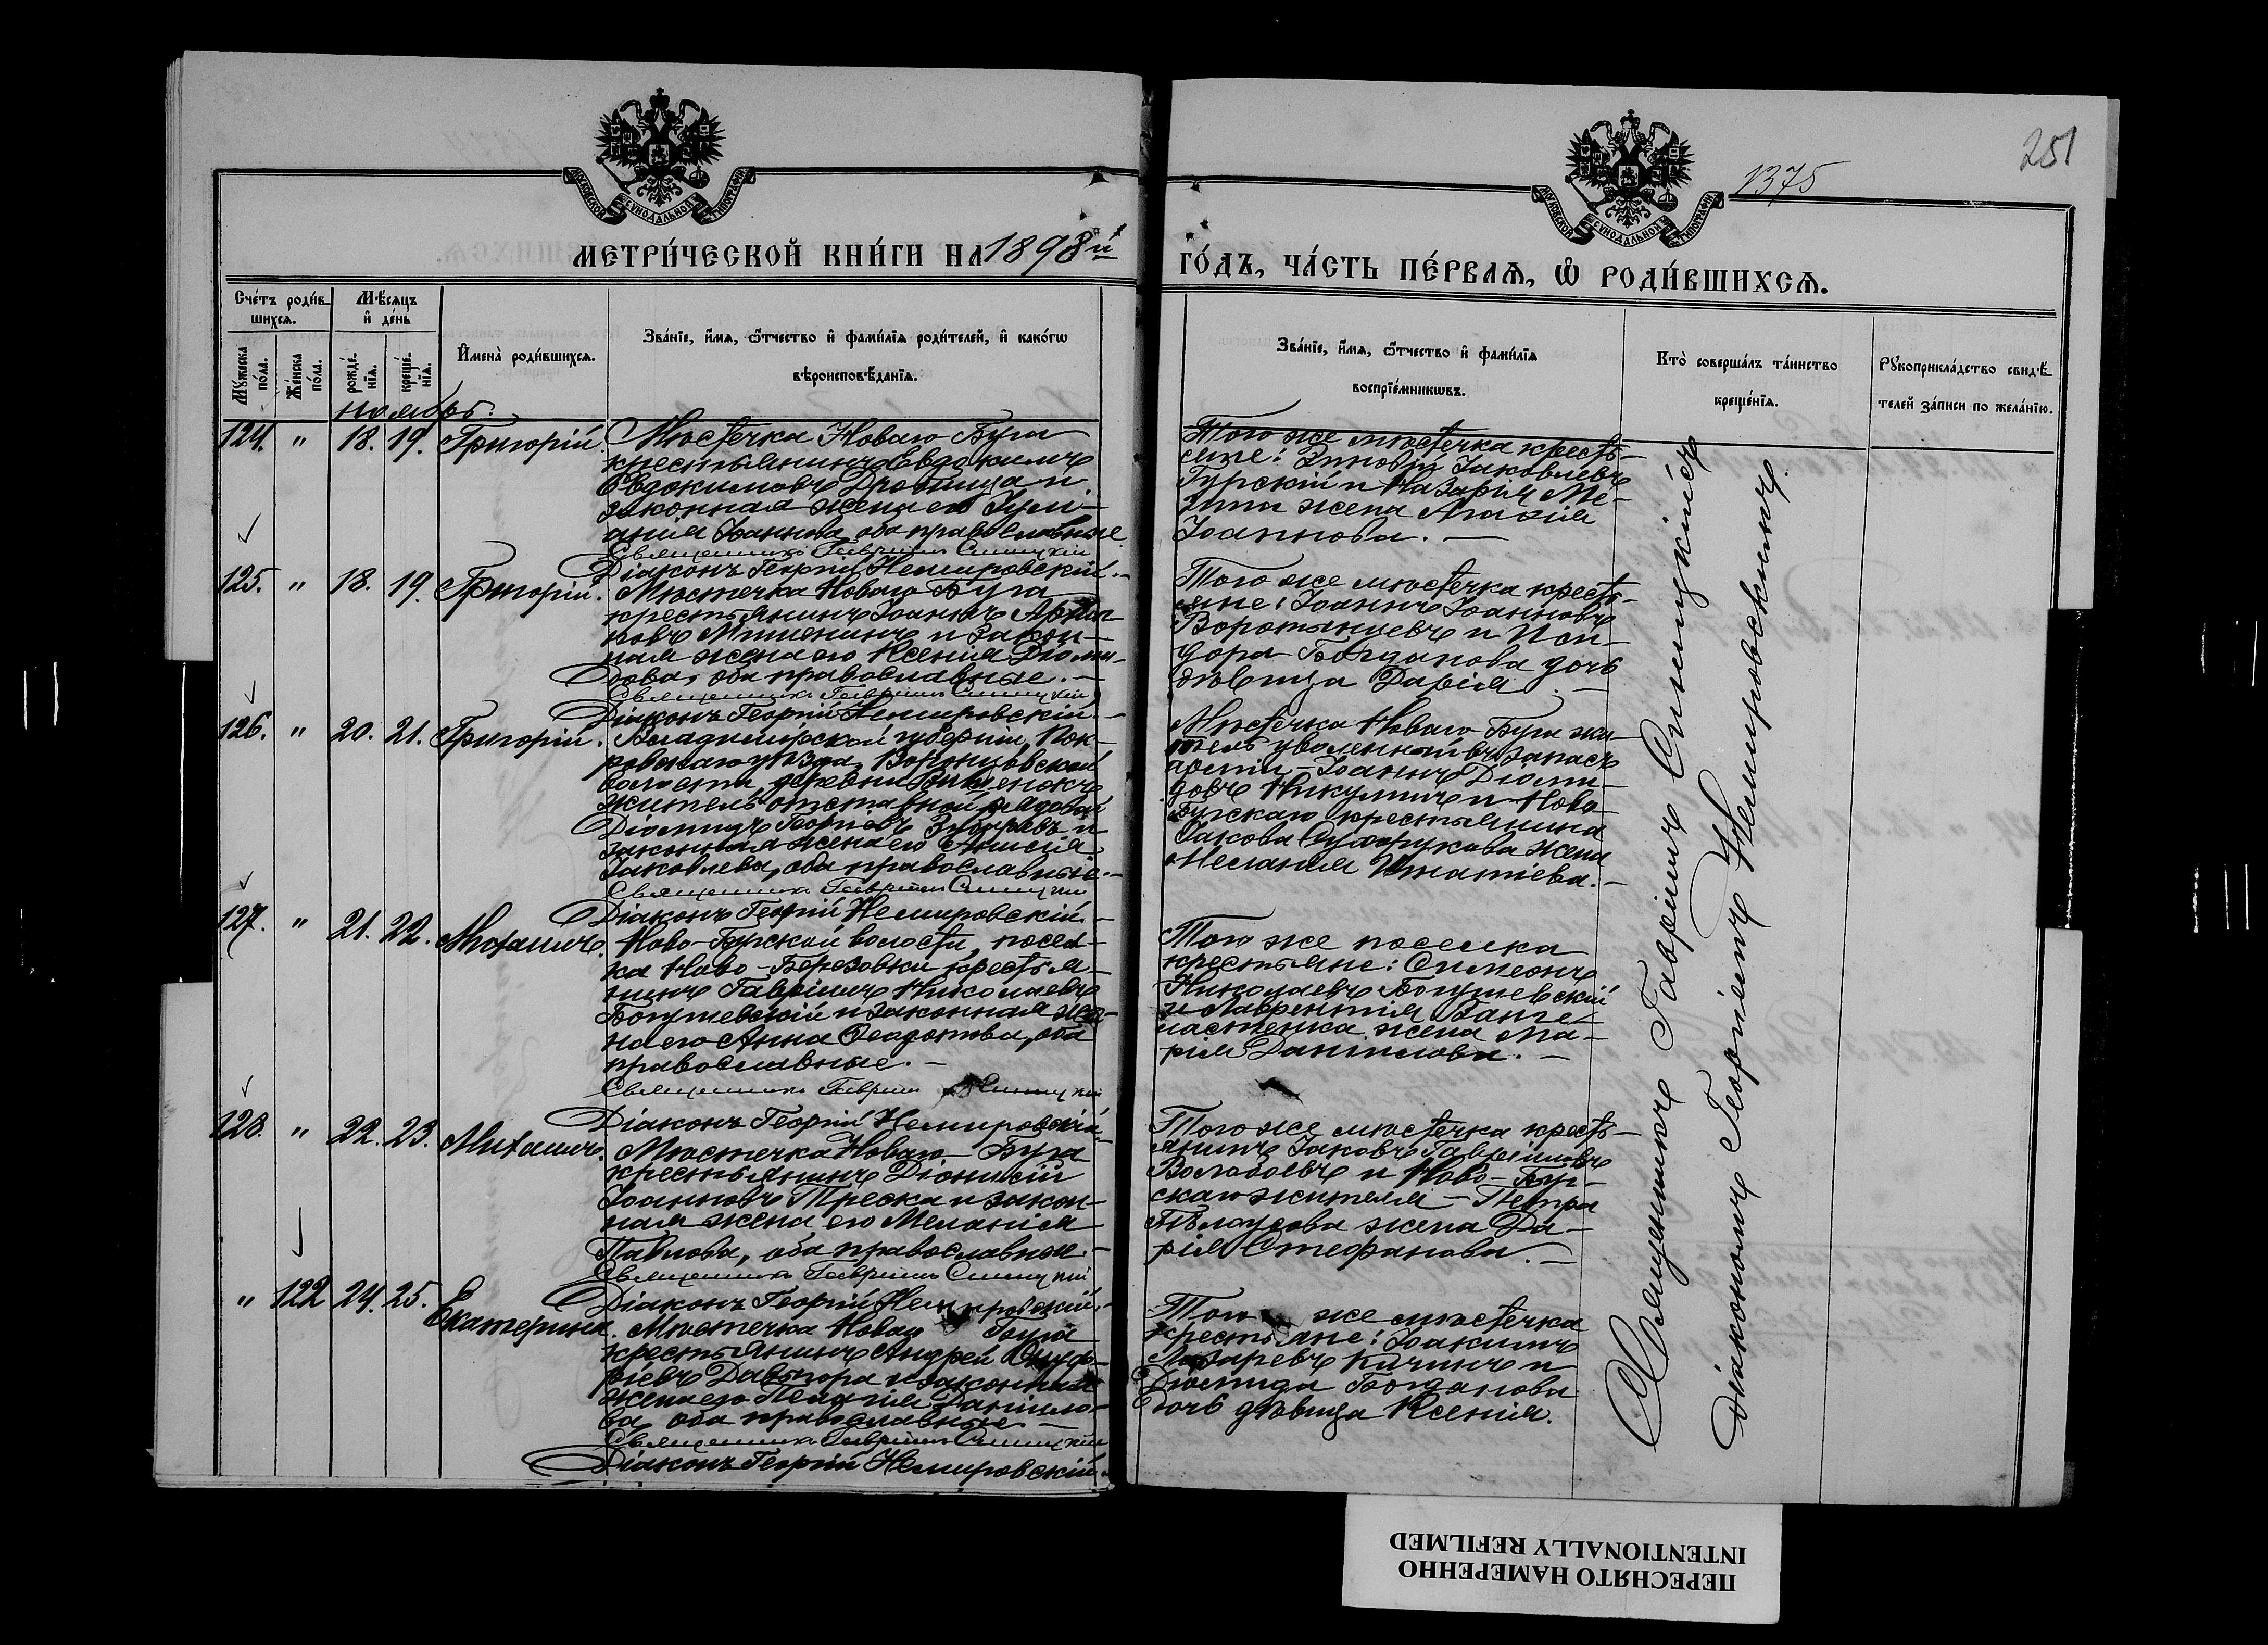 251
1375
МОСКОВСКОЙ СѴНОДАЛЬНОЙ ТИПОГРАФІИ
МОСКОВСКОЙ СѴНОДАЛЬНОЙ ТИПОГРАФІИ
МЕТРИ́ЧЕСКОЙ КНИ́ГИ НА 1898й
ГО́ДЪ, ЧА́СТЬ ПЕ́РВАѦ, Ѽ РОДИ́ВШИХСѦ.
Сче́тъ роди́в-
шихсѧ.
Мѣ́сѧцъ
и҆ де́нь
Мꙋ́жеска по́ла.
Же́нска по́ла.
рожде́нїѧ.
креще́нїѧ.
И҆мена̀ роди́вшихсѧ.
Зва́нїе, и҆́мѧ, ѻ҆́тчество и҆ фами́лїѧ роди́телей, и҆ како́гѡ
вѣроисповѣ́данїѧ.
Зва́нїе, и҆́мѧ, ѻ҆́тчество и҆ фами́лїѧ
воспрїе́мникѡвъ.
Кто̀ соверша́лъ та́инство
креще́нїѧ.
Рꙋкоприкла́дство свидѣ́-
телей за́писи по жела́нїю.
ноябрь.
124. " 18. 19. Григорій.
Мѣстечка Новаго Буга
крестьянинъ Евдокимъ
Евдокимовъ Дробница и
законная жена его Іулі-
анія Іоаннова, оба православные
Священникъ Гавріилъ Синицкій
Діаконъ Георгій Немировскій.
Того же мѣстечка кресть-
яне: Зиновій Іаковлевъ
Гурскій и Назарія Ме-
жена
Іоаннова.
125. " 18. 19. Григорій.
Мѣстечка Новаго Буга
крестьянинъ Іоаннъ Архип-
повъ Мишенинъ и закон-
ная жена его Ксенія Діоми-
дова, оба православные.
Священникъ Гавріилъ Синицкій
Діаконъ Георгій Немировскій.
Того же мѣстечка кресть-
яне: Іоаннъ Іоанновъ
Воротынцевъ и Иси-
дора Богданова дочь
дѣвица Дарія.
126. " 20. 21. Григорій.
Владимірской губерніи, Пок-
ровскаго уѣзда,
волости, деревни
житель отставной рядовой
Діомидъ Георгіевъ и
законная жена его Анисія
Іаковлева, оба православные.
Священникъ Гавріилъ Синицкій
Діаконъ Георгій Немировскій.
Мѣстечка Новаго Буга жи-
тель уволенный въ запасъ
арміи - Іоаннъ Діоми-
довъ Никулинъ и Ново-
Бугскаго крестьянина
Іакова Сухорукова жена
Меланія Игнатіева.
127. " 21. 22. Михаилъ.
Ново-Бугской волости, посел-
ка Ново-Березовки крестья-
нинъ Гавріилъ Николаевъ
Богушевскій и законная же-
на его Анна Феодотова, оба
православные.
Священникъ Гавріилъ Синицкій
Діаконъ Георгій Немировскій.
Того же поселка
крестьяне: Симеонъ
Николаевъ Богушевскій
и Лаврентія
жена Ма-
рія Даніилова.
128. " 22. 23. Михаилъ.
Мѣстечка Новаго Буга
крестьянинъ Діонисій
Іоанновъ Треска и закон-
ная жена его Меланія
Павлова, оба православные.
Священникъ Гавріилъ Синицкій
Діаконъ Георгій Немировскій.
Того же мѣстечка кресть-
янинъ Іаковъ Гавріиловъ
Волобоевъ и Ново-Буг-
скаго жителя - Петра
Бѣлоусова жена Да-
рія Стефанова.
" 122 24. 25. Екатерина.
Мѣстечка Новаго Буга
крестьянинъ Андрей Онуф-
ріевъ и законная
жена его Пелагія Даніило-
ва, оба православные.
Священникъ Гавріилъ Синицкій
Діаконъ Георгій Немировскій.
Того же мѣстечка
крестьяне: Іоакимъ
Лазаревъ Качинъ и
Діомида Богданова
дочь дѣвица Ксенія.
Священникъ Гавріилъ Синицкій съ
Діакономъ Георгіемъ Немировскимъ.
ПЕРЕСНЯТО НАМЕРЕННО
INTENTIONALLY REFILMED